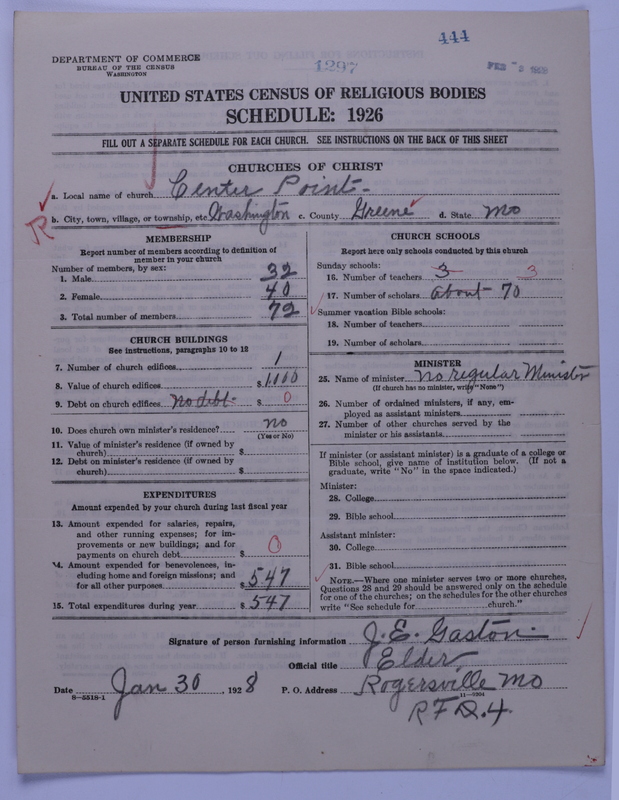 444
DEPARTMENT OF COMMERCE
BUREAU OF THE CENSUS
WASHINGTON
1297
FEB
UNITED STATES CENSUS OF RELIGIOUS BODIES
SCHEDULE: 1926
FILL OUT A SEPARATE SCHEDULE FOR EACH CHURCH. SEE INSTRUCTIONS ON THE BACK OF THIS SHEET
CHURCHES OF CHRIST
a. Local name of church Center Point
R b. City, town, village, or township, etc. Washington c. County Greene d. State Mo
MEMBERSHIP
Report number of members according to definition of
member in your church
Number of members, by sex:
1. Male 32
2. Female 40
3. Total number of members 72
CHURCH BUILDINGS
See instructions, paragraphs 10 to 12
7. Number of church edifices 1
8. Value of church edifices $
9. Debt on church edifices No debt $ 0
10. Does church own minister's residence? no
(Yes or No)
11. Value of minister's residence (if owned by
church) $
12. Debt on minister's residence (if owned by
church) $
EXPENDITURES
Amount expended by your church during last fiscal year
13. Amount expended for salaries, repairs,
and other running expenses; for im-
provements or new buildings; and for
payments on church debt $ 0
14. Amount expended for benevolences, in-
cluding home and foreign missions; and
for all other purposes $ 547
15. Total expenditures during year $ 547
CHURCH SCHOOLS
Report here only schools conducted by this church
Sunday schools:
16. Number of teachers 3 3
17. Number of scholars about 70
Summer vacation Bible schools:
18. Number of teachers
19. Number of scholars
MINISTER
25. Name of minister No regular Minister
(If church has no minister, write "None")
26. Number of ordained ministers, if any, em-
ployed as assistant ministers
27. Number of other churches served by the
minister or his assistants
If minister (or assistant minister) is a graduate of a college or
Bible school, give name of institution below. (If not a
graduate, write "No" in the space indicated.)
Minister:
28. College
29. Bible school
Assistant minister:
30. College
31. Bible school
NOTE.—Where one minister serves two or more churches,
Questions 28 and 29 should be answered only on the schedule
for one of the churches; on the schedules for the other churches
write "See schedule for church."
Signature of person furnishing information J. E. Gaston
Official title Elder
Date Jan 30, 1928 P. O. Address Rogersville Mo
8—5518-1 11—9204
R F D. 4.